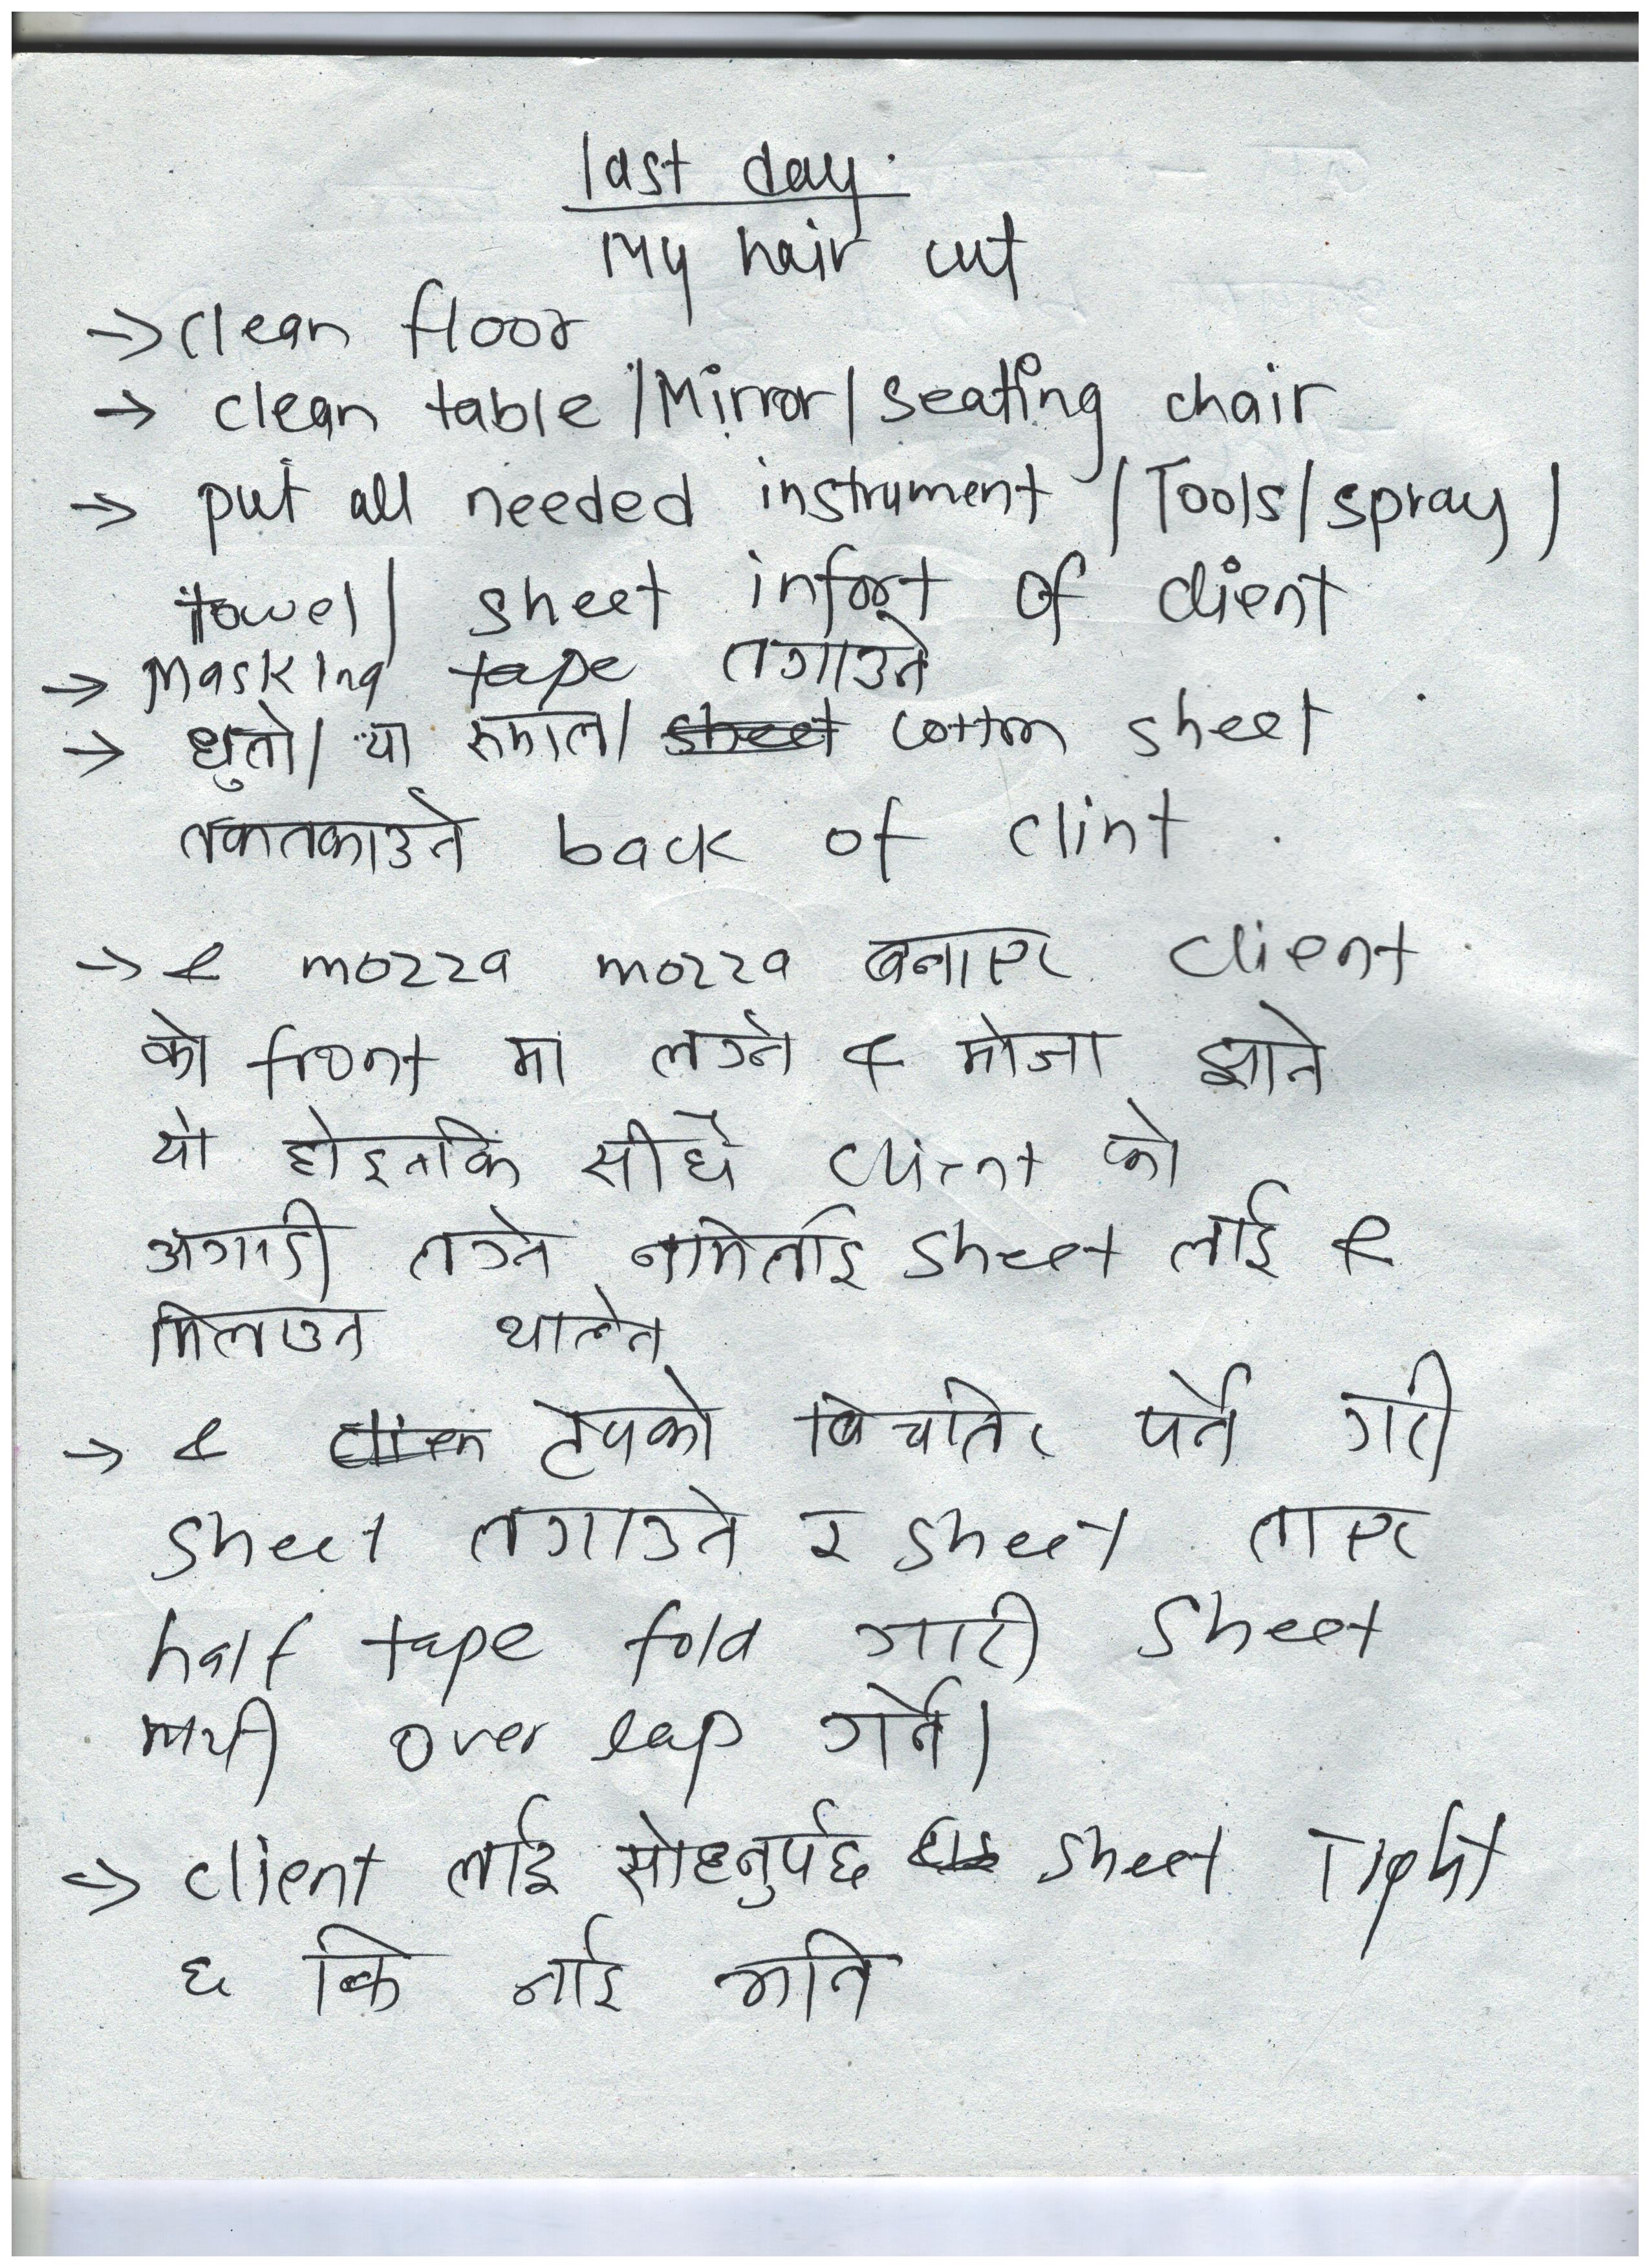 last day.
My hair cut
→ clean floor
→ clean table / Mirror / seating chair
→ put all needed instrument / Tools / spray /
towel / sheet infort of client
→ Masking tape लगाउने
→ धुलो / या रुमाल / cotton sheet
तकतकाउने back of clint.
→ & mozza mozza बनाएर client
को front मा लग्ने & मोजा झाने
यो होइनकि सीधै client को
अगाडी लग्ने नामिलाई sheet लाई &
मिलाउन थालेन
→ & टेपको बिचतिर पर्ने गरी
sheet लगाउने र sheet लाएर
half tape fold गारी sheet
मथी over lap गर्ने।
→ client लाई सोहनुपर्छ sheet Tight
छ कि नाई भनि